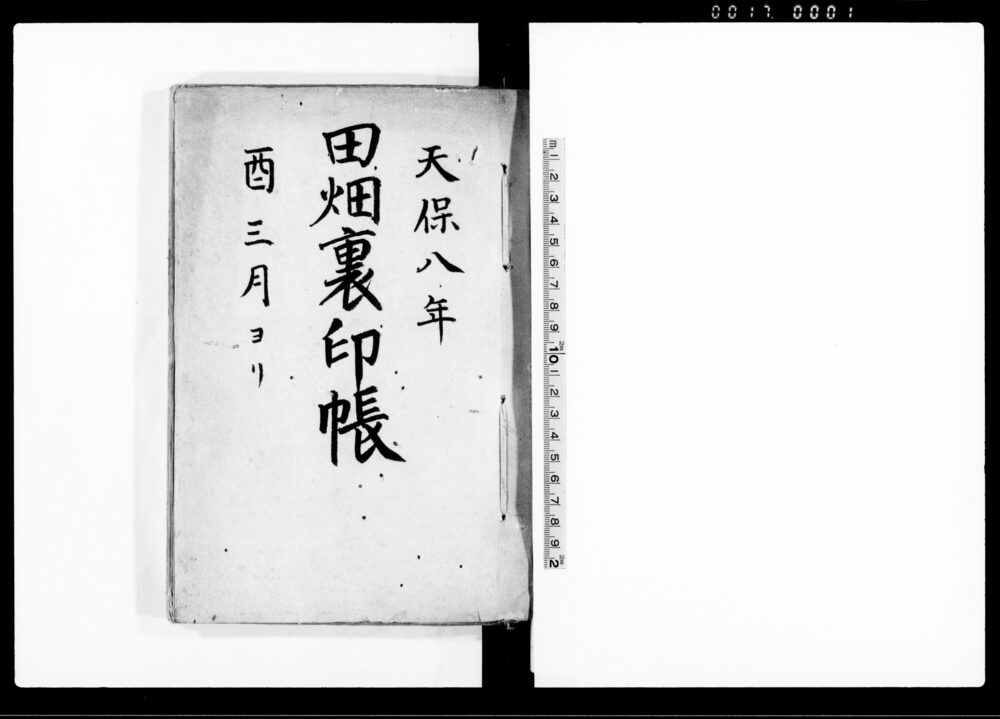 0017 0001
天保八年
田畑裏印帳
酉三月ヨリ
m 1 2 3 4 5 6 7 8 9 10 1 2 3 4 5 6 7 8 9 2